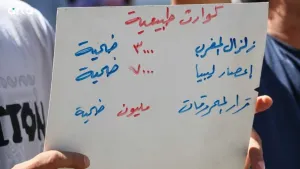 كوارث طبيعية
زلزال المغرب ٣٠٠٠ ضحية
اعصار ليبيا ٧٠٠٠ ضحية
قرار المحروقات مليون ضحية